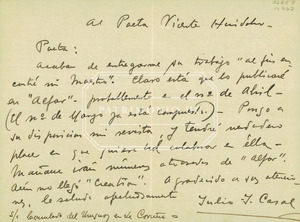 Al Poeta Vicente Huidobro
Poeta:
Acaban de entregarme su trabajo "Al fin en
contré mi Maestro". Claro está que lo publicaré
en "Alfar" - probablemente en el nº de Abril -
(El nº de Marzo ya está compuesto). Pongo a
su disposición mi revista, y tendré verdadero
place en que quiera Vd colaborar en ella.
Mañana irán números atrasados de "Alfar".
Aún no llegó "Creation". Agradecido a su atención
le saluda afectuosamente
Julio J. Casal
s/c Consulado del Uruguay en La Coruña